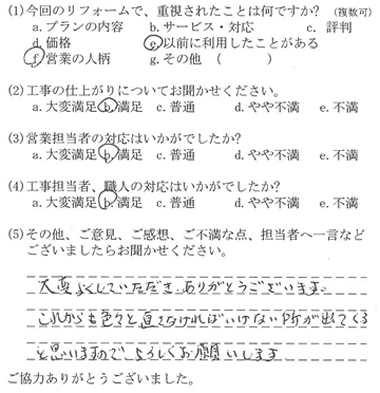 (1)今回のリフォームで、重視されたことは何ですか? (複数可)
a.プランの内容 b.サービス・対応 c. 評判
d.価格 e.以前に利用したことがある
f.営業の人柄 g.その他 ( )
(2)工事の仕上がりについてお聞かせください。
a.大変満足 b.満足 c.普通 d.やや不満 e.不満
(3)営業担当者の対応はいかがでしたか?
a.大変満足 b.満足 c.普通 d.やや不満 e.不満
(4)工事担当者、職人の対応はいかがでしたか?
a.大変満足 b.満足 c.普通 d.やや不満 e.不満
(5)その他、ご意見、ご感想、ご不満な点、担当者へ一言など
ございましたらお聞かせください。
大変よくしていただき、ありがとうございます。
これからも色々と直さなければいけない所が出てくる
と思いますのでよろしくお願いします
ご協力ありがとうございました。